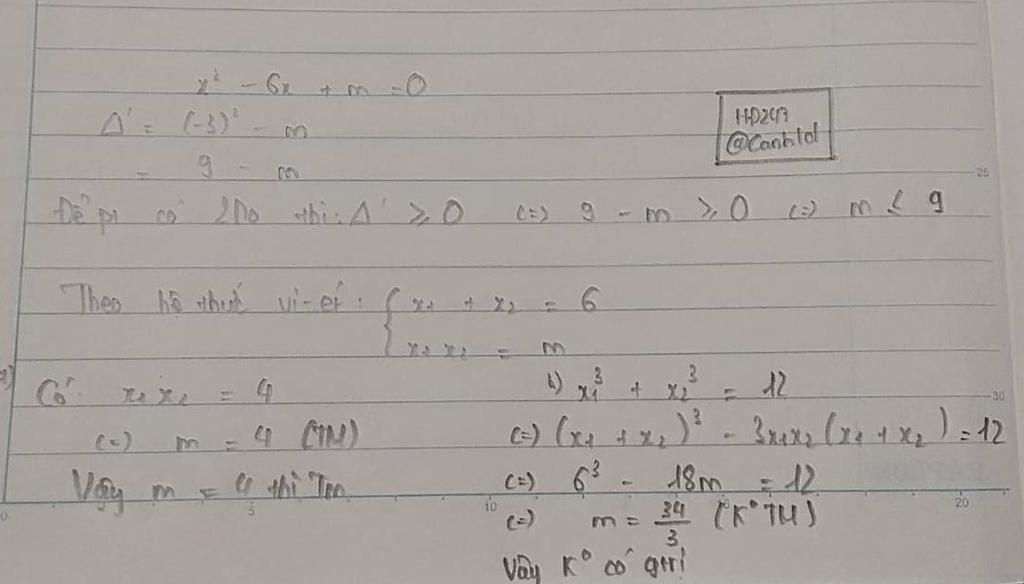 x² - 6x + m = 0
Δ' = (-3)² - m
= 9 - m
HD247
@Canhtd
Để pt có 2no thì: Δ' ≥ 0 (=) 9 - m ≥ 0 (=) m ≤ 9
Theo hệ thức vi-ét: { x₁ + x₂ = 6
x₁ x₂ = m
a) Có: x₁ x₂ = 4
(=) m = 4 (TM)
Vậy m = 4 thì Tm
b) x₁³ + x₂³ = 12
(=) (x₁ + x₂)³ - 3x₁x₂ (x₁ + x₂) = 12
(=) 6³ - 18m = 12
(=) m = 34/3 (K° TM)
Vậy K° có gtrị
25
30
0 5 10 20